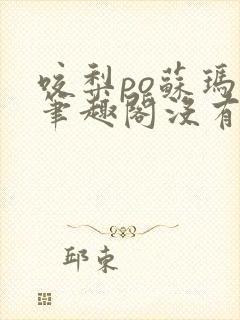 咬梨po蘇瑪
筆趣閣沒有
邱東